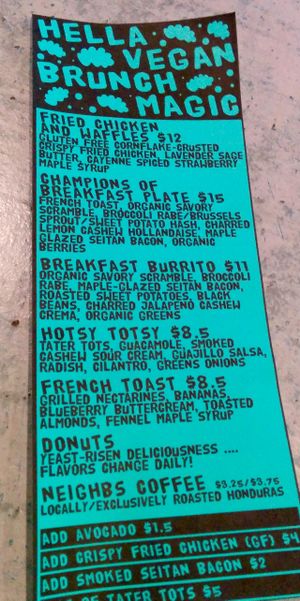 HELLA
VEGAN
BRUNCH
MAGIC
FRIED CHICKEN
AND WAFFLES $12
GLUTEN FREE CORNFLAKE-CRUSTED
CRISPY FRIED CHICKEN, LAVENDER SAGE
BUTTER, CAYENNE SPICED STRAWBERRY
MAPLE SYRUP
CHAMPIONS OF
BREAKFAST PLATE $15
FRENCH TOAST, ORGANIC SAVORY
SCRAMBLE, BROCCOLI RABE/BRUSSELS
SPROUT/SWEET POTATO HASH, CHARRED
LEMON CASHEW HOLLANDAISE, MAPLE
GLAZED SEITAN BACON, ORGANIC
BERRIES
BREAKFAST BURRITO $11
ORGANIC SAVORY SCRAMBLE, BROCCOLI
RABE, MAPLE-GLAZED SEITAN BACON,
ROASTED SWEET POTATOES, BLACK
BEANS, CHARRED JALAPENO CASHEW
CREMA, ORGANIC GREENS
HOTSY TOTSY $8.5
TATER TOTS, GUACAMOLE, SMOKED
CASHEW SOUR CREAM, GUAJILLO SALSA,
RADISH, CILANTRO, GREENS ONIONS
FRENCH TOAST $8.5
GRILLED NECTARINES, BANANAS,
BLUEBERRY BUTTERCREAM, TOASTED
ALMONDS, FENNEL MAPLE SYRUP
DONUTS
YEAST-RISEN DELICIOUSNESS ....
FLAVORS CHANGE DAILY!
NEIGHBS COFFEE $3.25/$3.75
LOCALLY/EXCLUSIVELY ROASTED HONDURAS
ADD AVOCADO $1.5
ADD CRISPY FRIED CHICKEN (GF) $4
ADD SMOKED SEITAN BACON $2
OF TATER TOTS $5